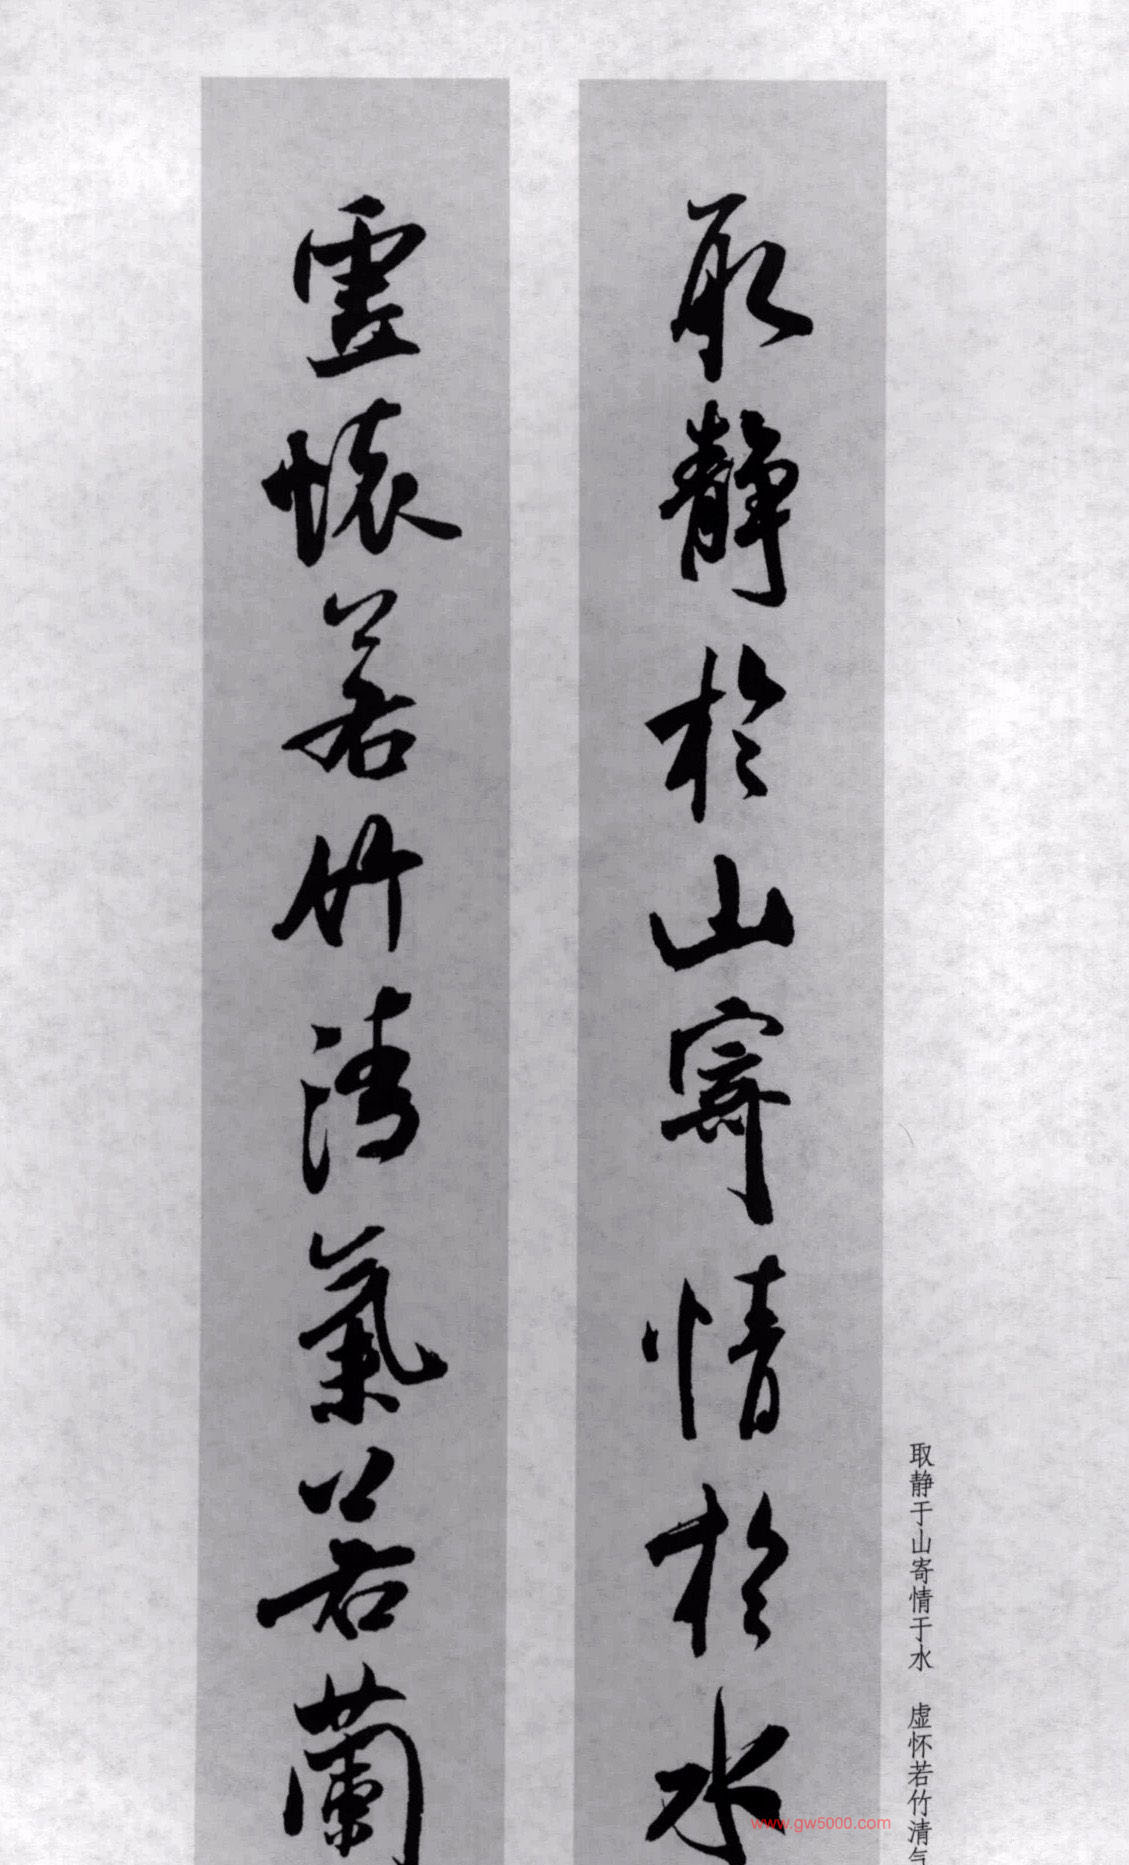 取静於山寄情於水
虚懷若竹清氣若蘭
取静于山寄情于水　虚怀若竹清气
www.gw5000.com